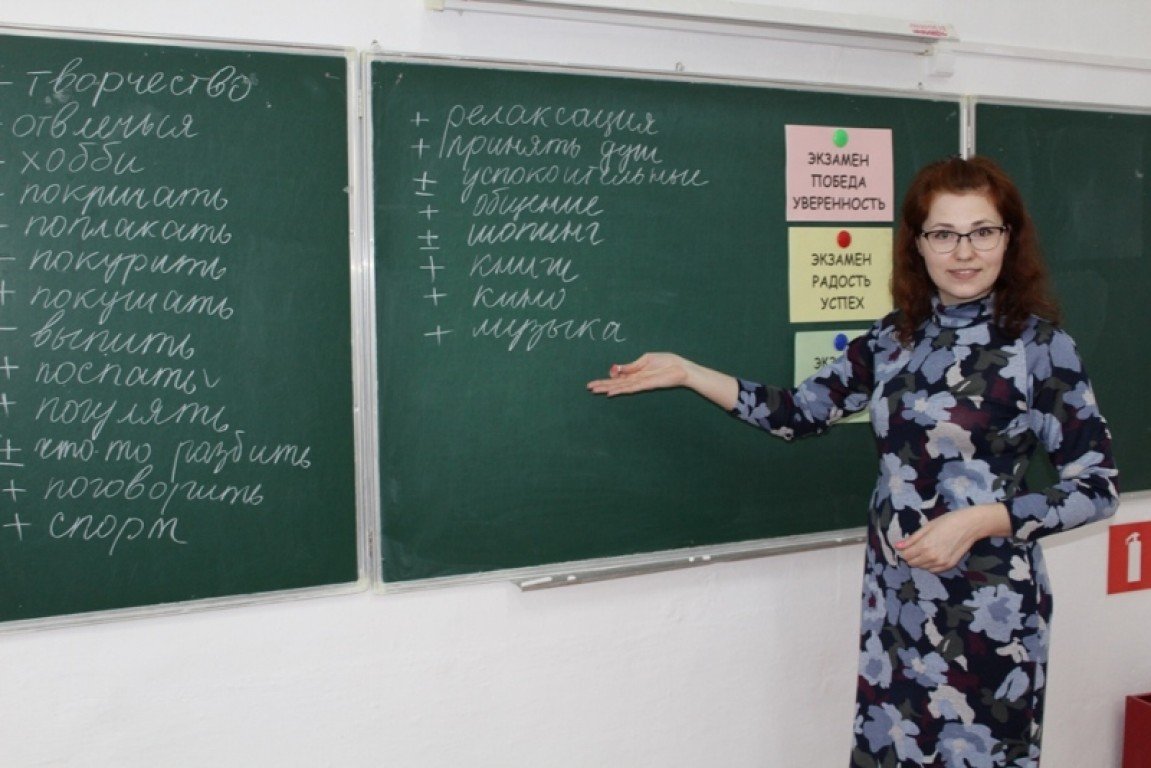 - творчество
- отвлечься
- хобби
- покричать
- поплакать
- покурить
+ покушать
- выпить
+ поспать
+ погулять
± что-то разбить
+ поговорить
+ спорт
+ релаксация
+ принять душ
± успокоительные
+ общение
± шопинг
+ книги
+ кино
+ музыка
ЭКЗАМЕН
ПОБЕДА
УВЕРЕННОСТЬ
ЭКЗАМЕН
РАДОСТЬ
УСПЕХ